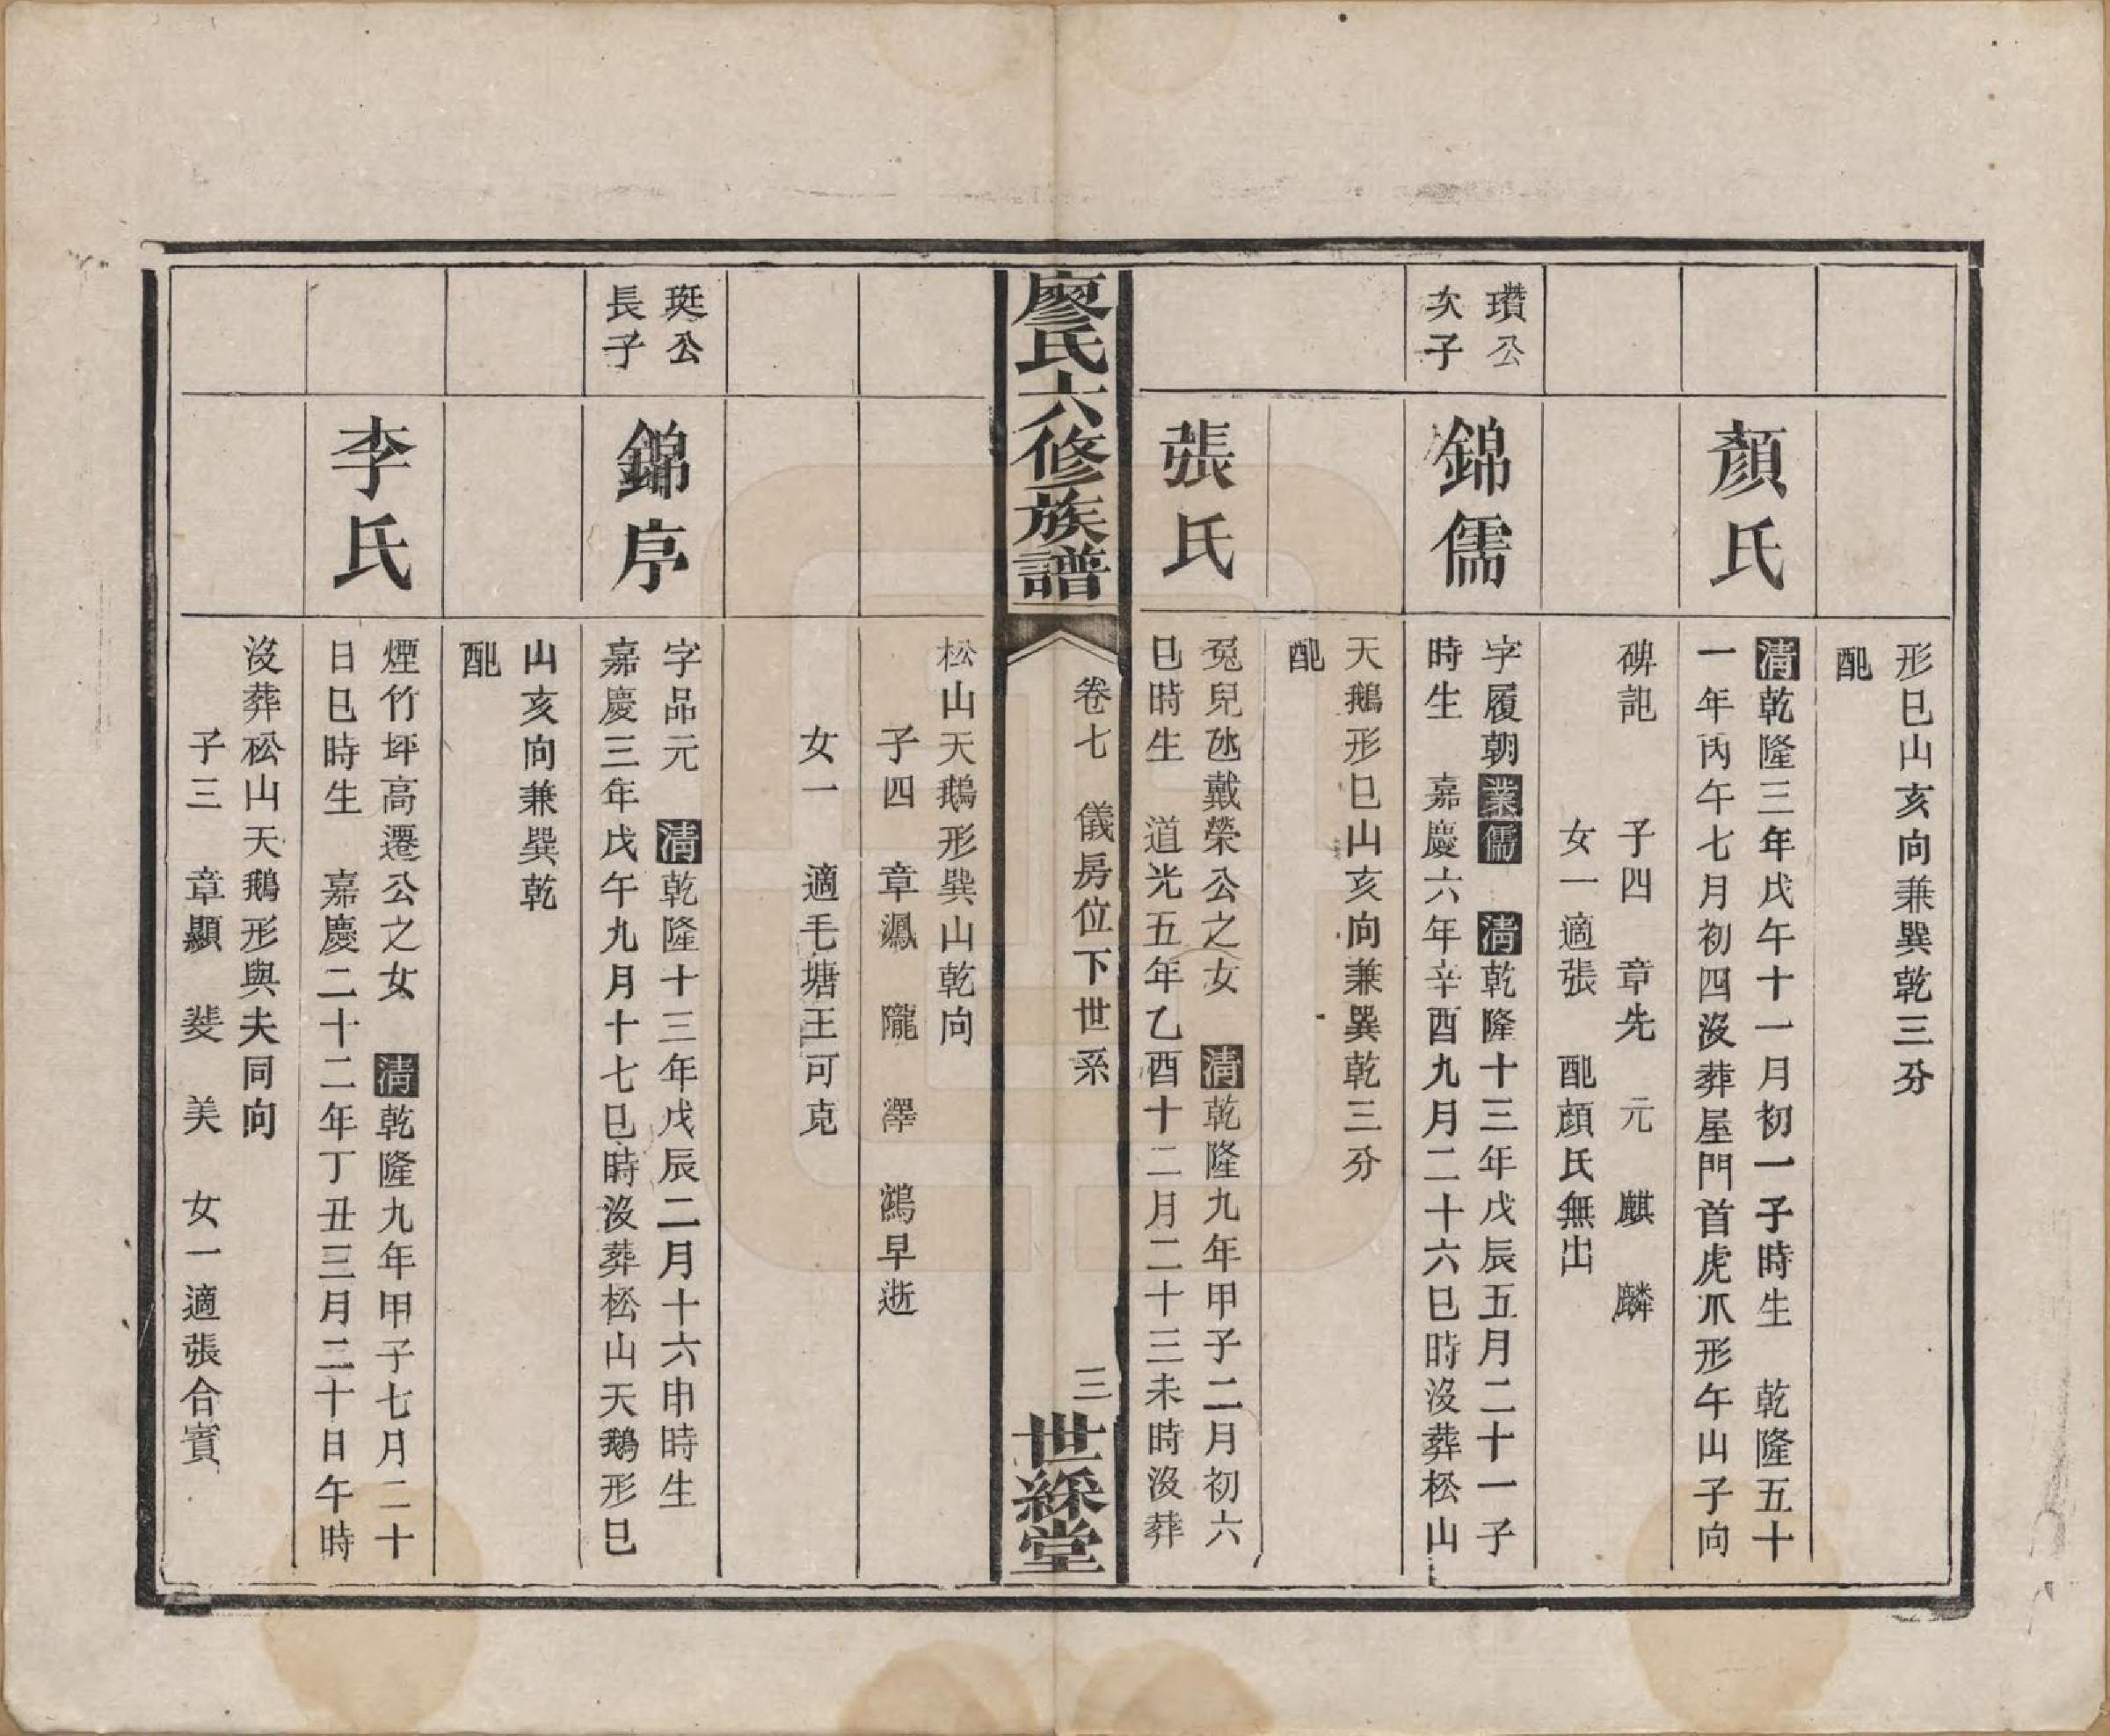 形巳山亥向兼巽乾三分
配
顏氏
清乾隆三年戊午十一月初一子時生　乾隆五十
一年丙午七月初四沒葬屋門首虎爪形午山子向
碑記　子四　章先　元　麒　麟
女一適張　配顏氏無出
瓚公
次子
錦儒
字履朝業儒　清乾隆十三年戊辰五月二十一子
時生　嘉慶六年辛酉九月二十六巳時沒葬松山
天鵝形巳山亥向兼巽乾三分
配
張氏
兔兒氹戴榮公之女　清乾隆九年甲子二月初六
巳時生　道光五年乙酉十二月二十三未時沒葬
廖氏六修族譜
卷七　儀房位下世系
三
世綵堂
松山天鵝形巽山乾向
子四　章鳳　隴　澤　鴻早逝
女一　適毛塘王可克
珽公
長子
錦序
字品元　清乾隆十三年戊辰二月十六申時生
嘉慶三年戊午九月十七巳時沒葬松山天鵝形巳
山亥向兼巽乾
配
李氏
煙竹坪高遷公之女　清乾隆九年甲子七月二十
日巳時生　嘉慶二十二年丁丑三月二十日午時
沒葬松山天鵝形與夫同向
子三　章顯　斐　美　女一適張合賓